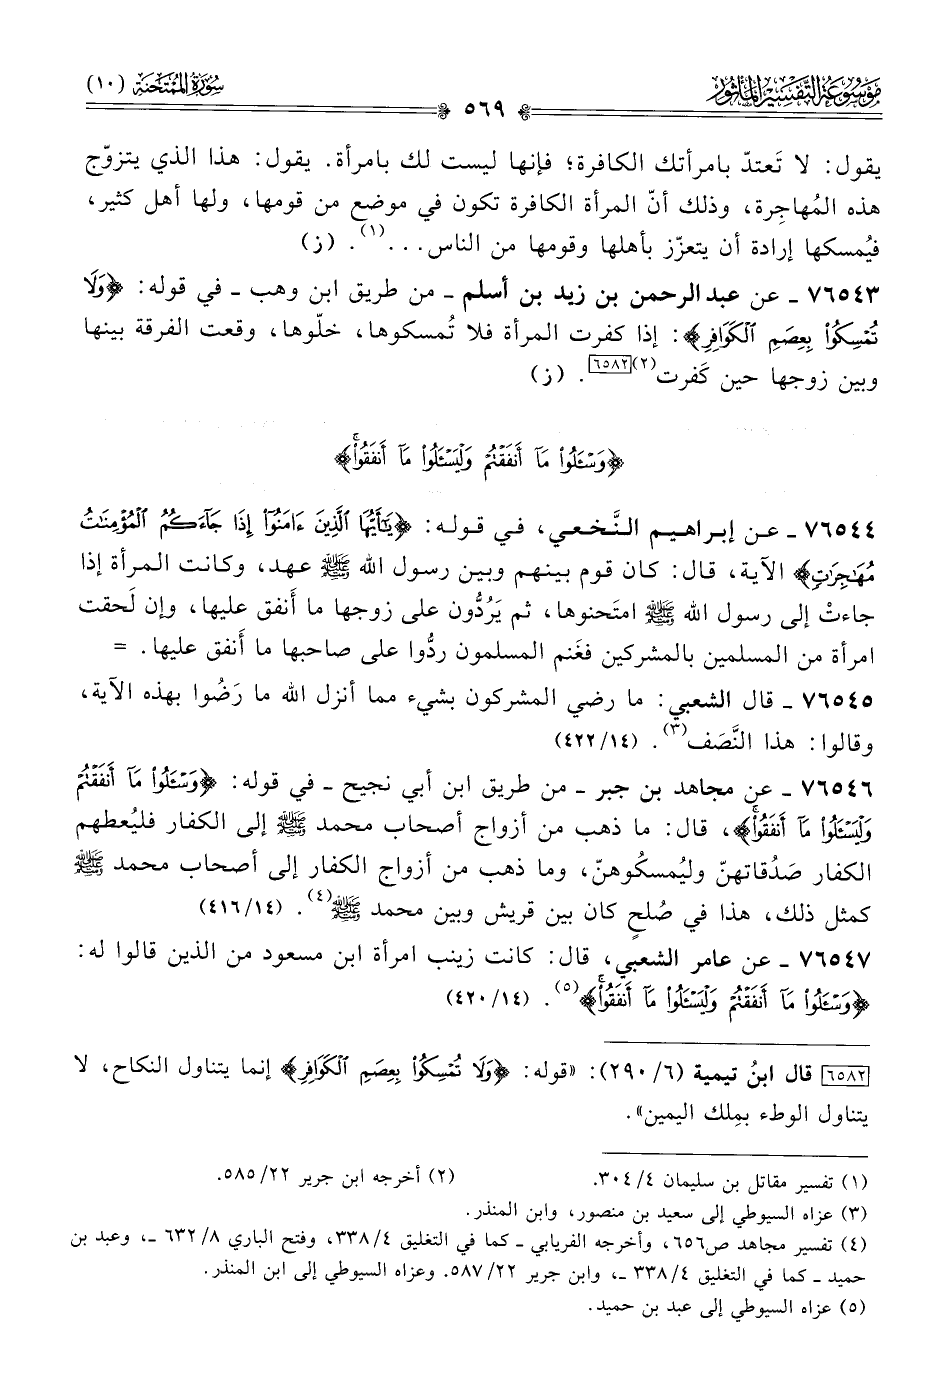 موسوعة التفسير المأثور
سورة الممتحنة (١٠)
٥٦٩
يقول: لا تَعتدّ بامرأتك الكافرة؛ فإنها ليست لك بامرأة. يقول: هذا الذي يتزوّج
هذه المُهاجِرة، وذلك أنّ المرأة الكافرة تكون في موضع من قومها، ولها أهل كثير،
فيُمسكها إرادة أن يتعزّز بأهلها وقومها من الناس...(١). (ز)
٧٦٥٤٣ ـ عن عبد الرحمن بن زيد بن أسلم ـ من طريق ابن وهب ـ في قوله: ﴿وَلَا
تُمْسِكُوا۟ بِعِصَمِ ٱلْكَوَافِرِ﴾: إذا كفرت المرأة فلا تُمسكوها، خلّوها، وقعت الفرقة بينها
وبين زوجها حين كَفرت(٢)[٦٥٨٢]. (ز)
﴿وَسْـَٔلُوا۟ مَآ أَنفَقْتُمْ وَلْيَسْـَٔلُوا۟ مَآ أَنفَقُوا۟ۚ﴾
٧٦٥٤٤ ـ عن إبراهيم النَّخعي، في قوله: ﴿يَـٰٓأَيُّهَا ٱلَّذِينَ ءَامَنُوٓا۟ إِذَا جَآءَكُمُ ٱلْمُؤْمِنَـٰتُ
مُهَـٰجِرَٰتٍ﴾ الآية، قال: كان قوم بينهم وبين رسول الله ﷺ عهد، وكانت المرأة إذا
جاءتْ إلى رسول الله ﷺ امتَحنوها، ثم يَرُدُّون على زوجها ما أَنفق عليها، وإن لَحقت
امرأة من المسلمين بالمشركين فغَنم المسلمون ردُّوا على صاحبها ما أَنفق عليها. =
٧٦٥٤٥ ـ قال الشعبي: ما رضي المشركون بشيء مما أنزل الله ما رَضُوا بهذه الآية،
وقالوا: هذا النَّصَف(٣). (١٤/ ٤٢٢)
٧٦٥٤٦ ـ عن مجاهد بن جبر ـ من طريق ابن أبي نجيح ـ في قوله: ﴿وَسْـَٔلُوا۟ مَآ أَنفَقْتُمْ
وَلْيَسْـَٔلُوا۟ مَآ أَنفَقُوا۟ۚ﴾، قال: ما ذهب من أزواج أصحاب محمد ﷺ إلى الكفار فليُعطهم
الكفار صَدُقاتهنّ وليُمسكُوهنّ، وما ذهب من أزواج الكفار إلى أصحاب محمد ﷺ
كمثل ذلك، هذا في صُلحٍ كان بين قريش وبين محمد ﷺ(٤). (١٤/ ٤١٦)
٧٦٥٤٧ ـ عن عامر الشعبي، قال: كانت زينب امرأة ابن مسعود من الذين قالوا له:
﴿وَسْـَٔلُوا۟ مَآ أَنفَقْتُمْ وَلْيَسْـَٔلُوا۟ مَآ أَنفَقُوا۟ۚ﴾(٥). (١٤/ ٤٢٠)
[٦٥٨٢] قال ابنُ تيمية (٦/ ٢٩٠): «قوله: ﴿وَلَا تُمْسِكُوا۟ بِعِصَمِ ٱلْكَوَافِرِ﴾ إنما يتناول النكاح، لا
يتناول الوطء بمِلك اليمين».
(١) تفسير مقاتل بن سليمان ٤/ ٣٠٤.
(٢) أخرجه ابن جرير ٢٢/ ٥٨٥.
(٣) عزاه السيوطي إلى سعيد بن منصور، وابن المنذر.
(٤) تفسير مجاهد ص٦٥٦، وأخرجه الفريابي ـ كما في التغليق ٤/ ٣٣٨، وفتح الباري ٨/ ٦٣٢ ـ، وعبد بن
حميد ـ كما في التغليق ٤/ ٣٣٨ ـ، وابن جرير ٢٢/ ٥٨٧. وعزاه السيوطي إلى ابن المنذر.
(٥) عزاه السيوطي إلى عبد بن حميد.